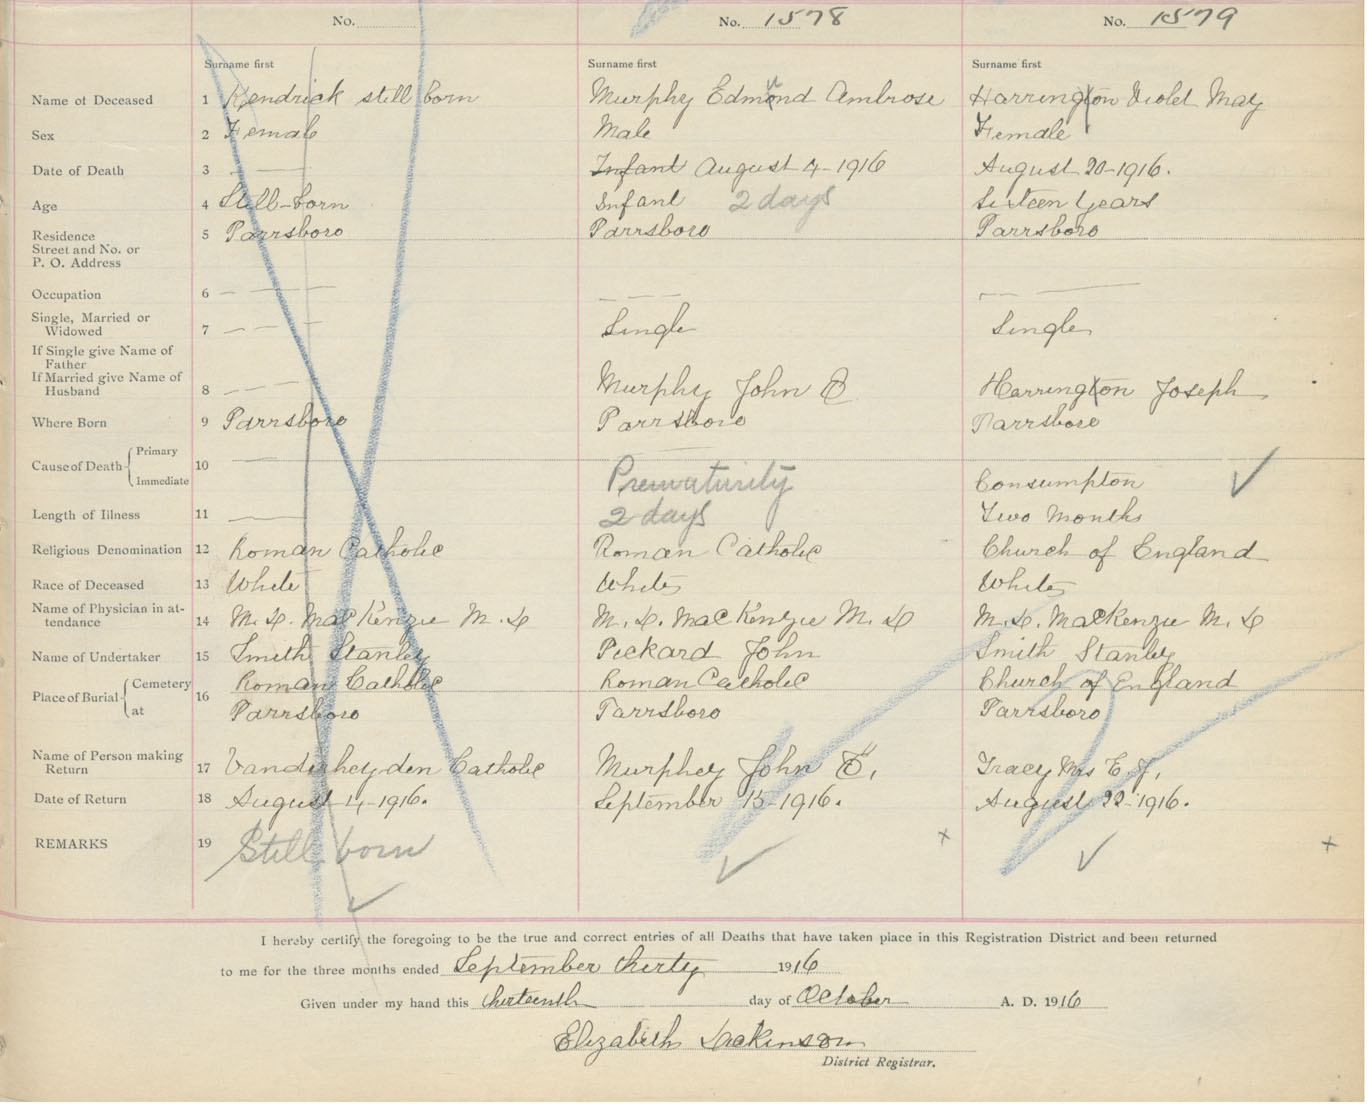 No. No. 1578 No. 1579
Surname first Surname first Surname first
Name of Deceased 1 Kendrick still born Murphy Edmond Ambrose Harrington Violet May
Sex 2 Female Male Female
Date of Death 3 — Infant August 4-1916 August 20-1916.
Age 4 Still-born Infant 2 days Sixteen Years
Residence 5 Parrsboro Parrsboro Parrsboro
Street and No. or
P. O. Address
Occupation 6 — — —
Single, Married or
Widowed 7 — — Single Single
If Single give Name of
Father
If Married give Name of
Husband 8 — — Murphy John E Harrington Joseph
Where Born 9 Parrsboro Parrsboro Parrsboro
Cause of Death { Primary
Immediate 10 — Prematurity Consumpton
Length of Illness 11 — 2 days Two Months
Religious Denomination 12 Roman Catholic Roman Catholic Church of England
Race of Deceased 13 White White White
Name of Physician in at-
tendance 14 M. D. MacKenzie M. D M. D. MacKenzie M. D M. D. MacKenzie M. D
Name of Undertaker 15 Smith Stanley Pickard John Smith Stanley
Place of Burial { Cemetery 16 Roman Catholic Roman Catholic Church of England
at Parrsboro Parrsboro Parrsboro
Name of Person making
Return 17 Vanderheyden Catholic Murphey John E. Tracy Mrs E J.
Date of Return 18 August 14-1916. September 15-1916. August 22-1916.
REMARKS 19 Still born
I hereby certify the foregoing to be the true and correct entries of all Deaths that have taken place in this Registration District and been returned
to me for the three months ended September thirty 1916
Given under my hand this thirteenth day of October A. D. 1916
Elizabeth
District Registrar.